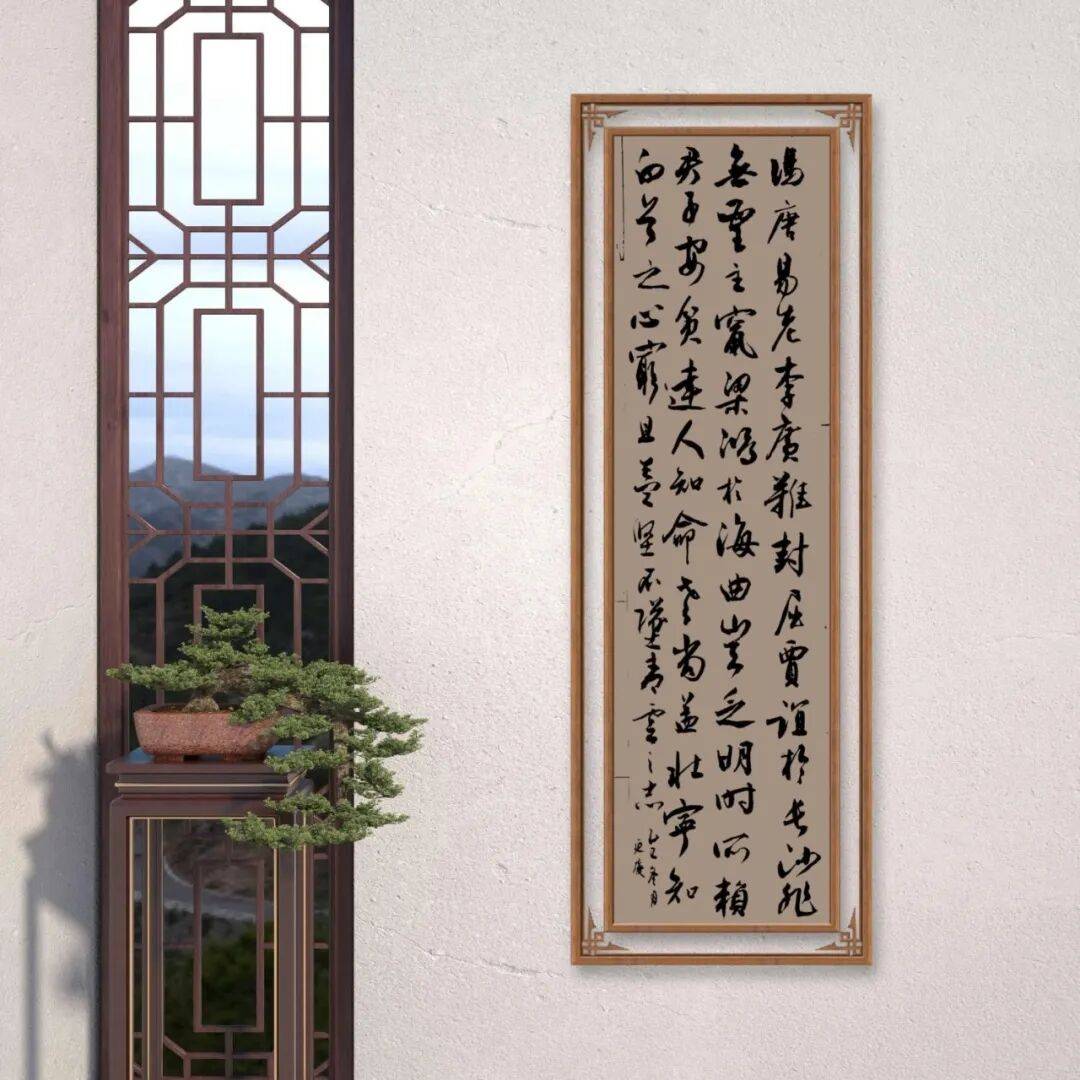 馮唐易老李廣難封屈賈誼於長沙非
無聖主竄梁鴻於海曲豈乏明時所賴
君子安貧達人知命老當益壯寧知
白首之心窮且益堅不墜青雲之志
冬月